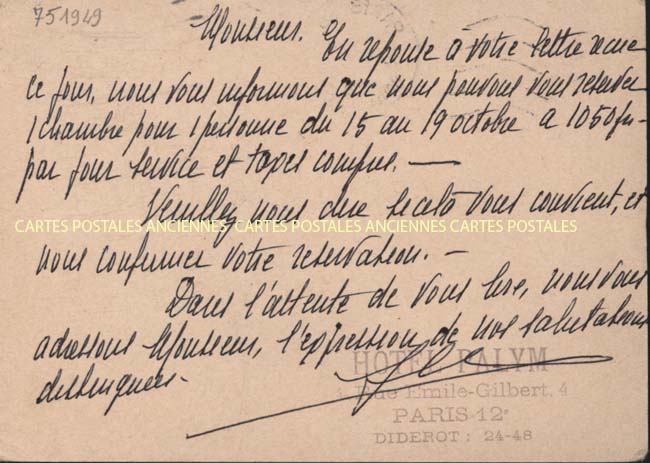 751949
Monsieur. En réponse à votre lettre reçue
ce jour, nous vous informons que nous pouvons vous réserver
1 chambre pour 1 personne du 15 au 19 octobre à 1050 frs
par jour service et taxes compris. —
Veuillez nous dire si cela vous convient, et
CARTES POSTALES ANCIENNES CARTES POSTALES ANCIENNES CARTES POSTALES
nous confirmer votre réservation. —
Dans l'attente de vous lire, nous vous
adressons Monsieur, l'expression de nos salutations
distinguées.
HOTEL PALYM
4 Rue Emile-Gilbert, 4
PARIS-12e
DIDEROT : 24-48